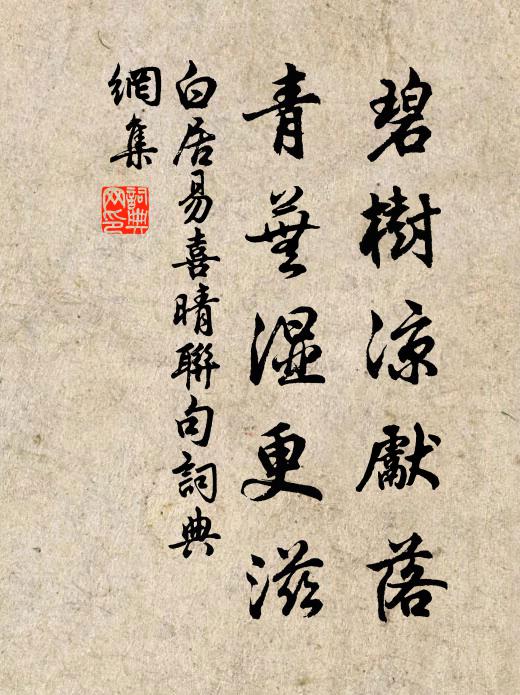 碧樹涼獻落
青蕪湿更滋
白居易喜晴聯句詞典
網集
詞典
网印